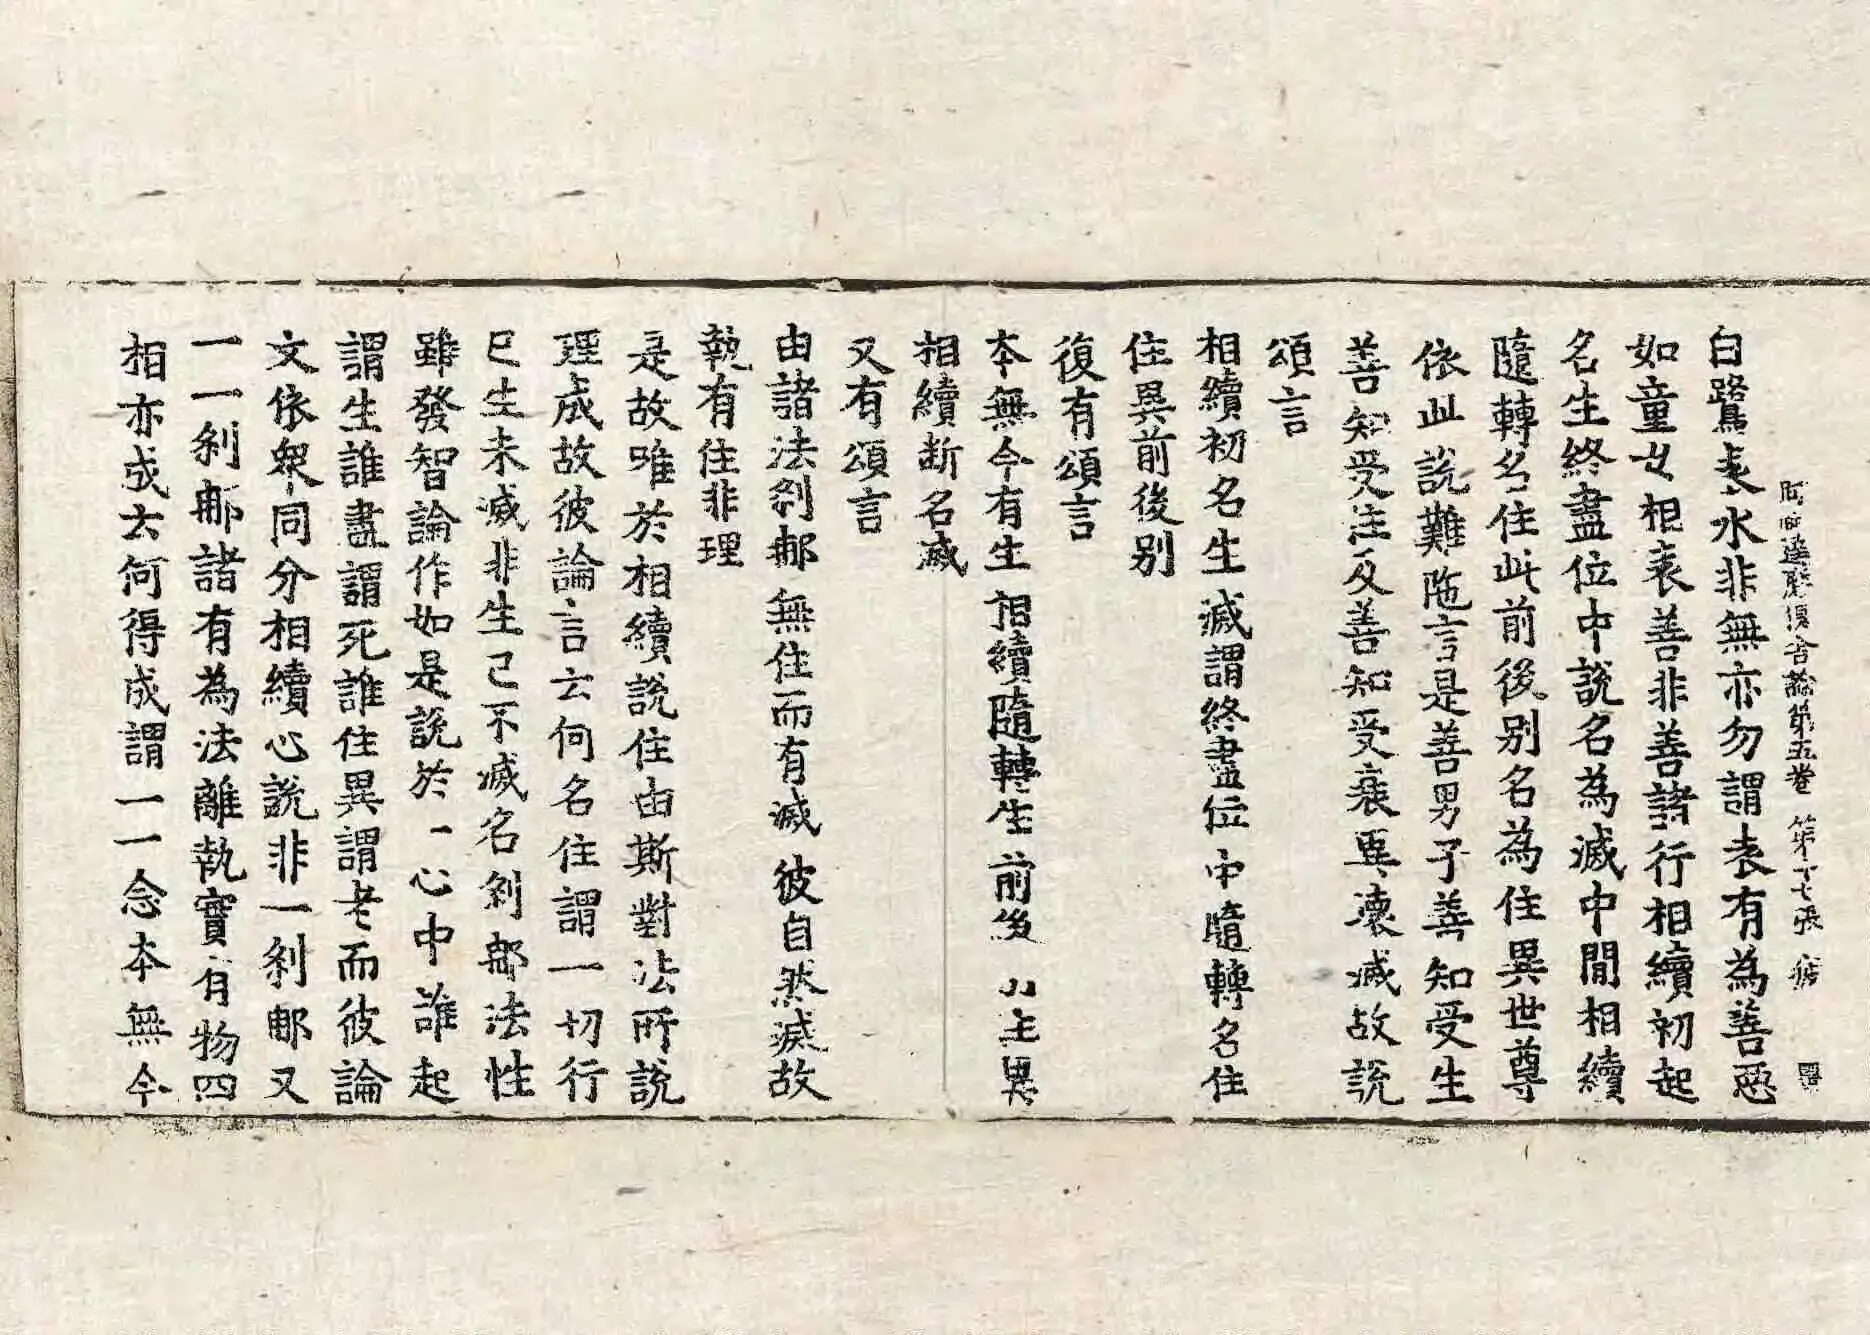 阿毗達磨俱舍論第五卷 第十七張
白鷺表水非無亦勿謂表有為善惡
如童女相表善非善諸行相續初起
名生終盡位中說名為滅中間相續
隨轉名住此前後別名為住異世尊
依此說難陁言是善男子善知受生
善知受住及善知受衰異壞滅故說
頌言
相續初名生 滅謂終盡位 中隨轉名住
住異前後別
復有頌言
本無今有生 相續隨轉生 前後 異
相續斷名滅
又有頌言
由諸法剎那 無住而有滅 彼自然滅故
執有住非理
是故唯於相續說住由斯對法所說
理成故彼論言云何名住謂一切行
已生未滅非生已不滅名剎那法性
雖發智論作如是說於一心中誰起
謂生誰盡謂死誰住異謂老而彼論
文依眾同分相續心說非一剎那又
一一剎那諸有為法離執實有物四
相亦成云何得成謂一一念本無今